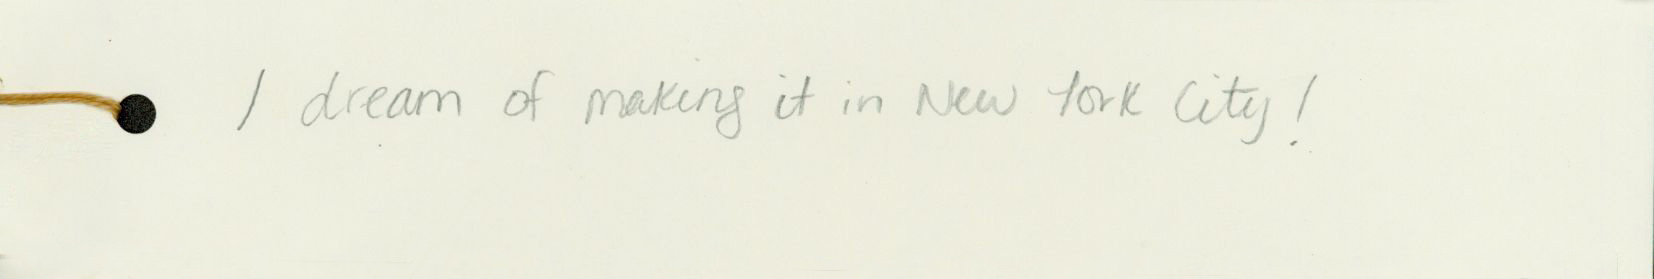 I dream of making it in New York City!